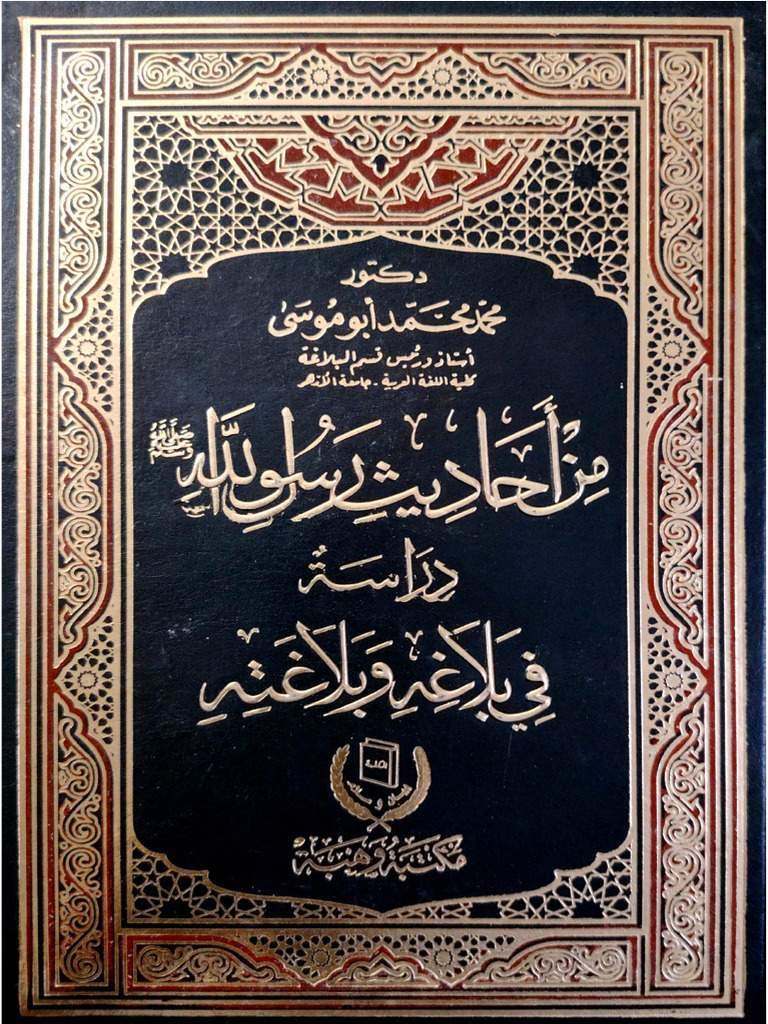 دكتور
محمد محمد أبو موسى
أستاذ ورئيس قسم البلاغة
كلية اللغة العربية - جامعة الأزهر
مِنْ أَحَادِيثِ رَسُولِ اللَّهِ ﷺ
دِرَاسَةٌ
فِي بَلَاغِهِ وَبَلَاغَتِهِ
مكتبة وهبة